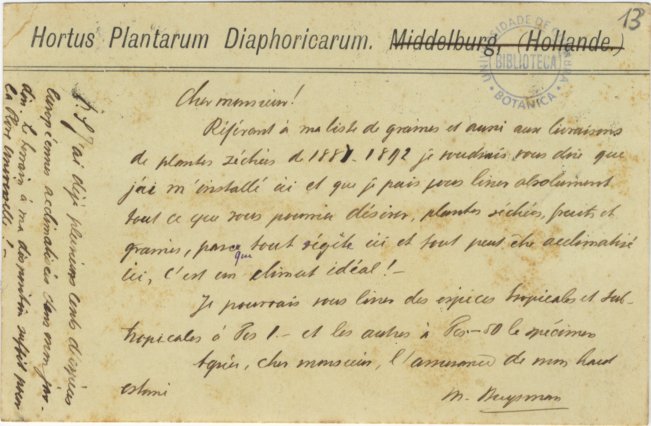 13
Hortus Plantarum Diaphoricarum. Middelburg, (Hollande.)
UNIVERSIDADE DE COIMBRA
BIBLIOTECA
BOTANICA
Cher monsieur!
Référant à ma liste de graines et aussi aux livraisons
de plantes séchées de 1887-1892 je voudrais vous dire que
j'ai m'installé ici et que je puis vous livrer absolument
tout ce que vous pourriez désirer, plantes séchées, fruits et
graines, parce que tout végète ici et tout peut être acclimatisé
ici, c'est un climat idéal! —
Je pourrais vous livrer des espèces tropicales et sub-
tropicales à Pes 1.— et les autres à Pes —50 le spécimen
Agréez, cher monsieur, l'assurance de mon haut
estime
M. Buysman
P.S. J'ai déjà plusieurs cents d'espèces
Européennes acclimatisées dans mon jar-
din. Le terrain à ma disposition suffit pour
la flore universelle! —